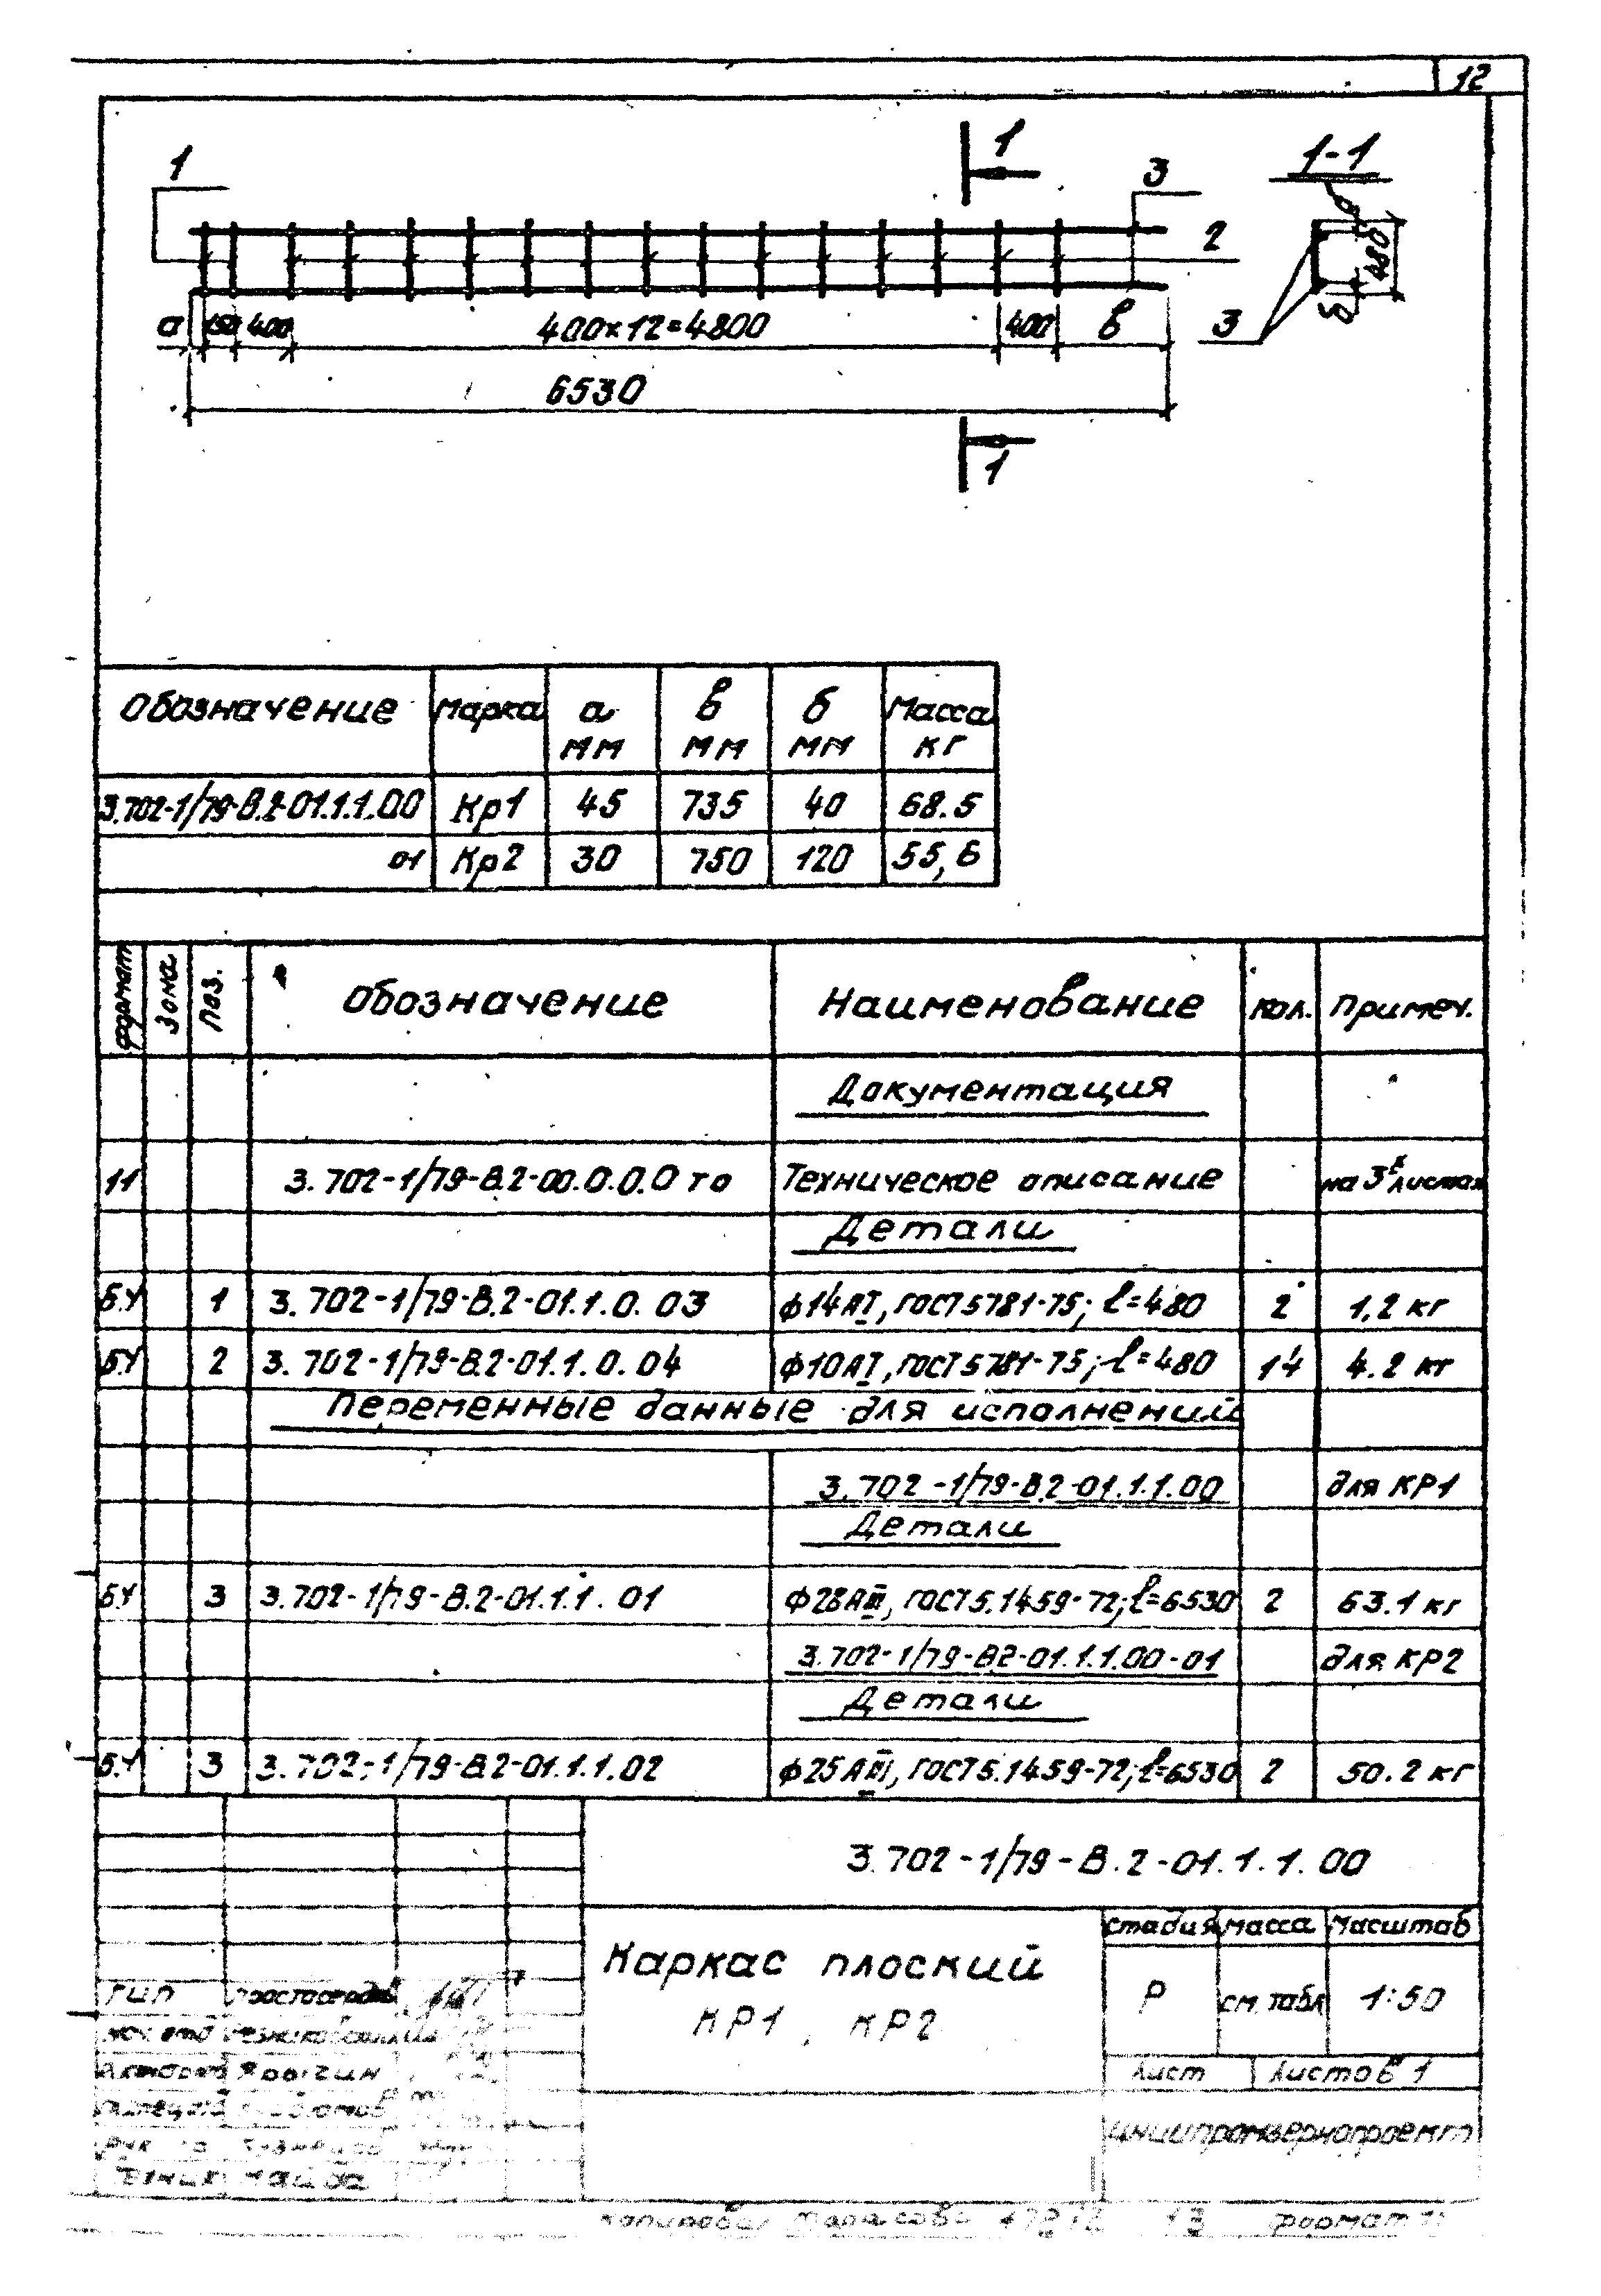 12
1
1
3
1-1
2
б
480
б
3
а 150 400 400×12=4800 400 в
6530
1
Обозначение Марка а мм в мм б мм Масса кг
3.702-1/79-В.2-01.1.1.00 Кр1 45 735 40 68.5
01 Кр2 30 750 120 55,6
формат Зона Поз. Обозначение Наименование Кол. Примеч.
Документация
11 3.702-1/79-В.2-00.0.0.0 то Техническое описание на 3х листах
Детали
Б.Ч 1 3.702-1/79-В.2-01.1.0.03 ф14АI, ГОСТ 5781-75; l=480 2 1,2 кг
Б.Ч 2 3.702-1/79-В.2-01.1.0.04 ф10АI, ГОСТ 5781-75; l=480 14 4.2 кг
Переменные данные для исполнений
3.702-1/79-В.2-01.1.1.00 для КР1
Детали
Б.Ч 3 3.702-1/79-В.2-01.1.1.01 ф28АIII, ГОСТ 5.1459-72; l=6530 2 63.1 кг
3.702-1/79-В2-01.1.1.00-01 для КР2
Детали
Б.Ч 3 3.702-1/79-В.2-01.1.1.02 ф25АIII, ГОСТ 5.1459-72; l=6530 2 50.2 кг
3.702-1/79-В.2-01.1.1.00
Каркас плоский
КР1, КР2
стадия масса масштаб
Р см. табл 1:50
Лист Листов 1
ЦНИИпромзернопроект
ГИП
Копировал Тарасова 13 формат 11